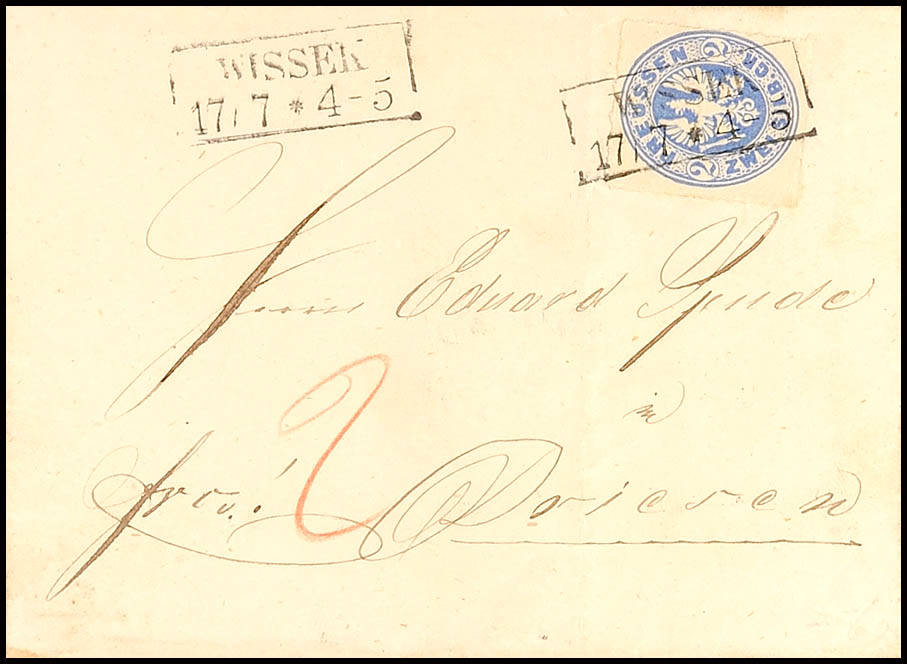 WISSEK
17/7 * 4-5
PREUSSEN 2 ZWEI SILB.GR. 2
17/7 * 4-5
Herrn Eduard Spude
in
frco.! 2 Driesen